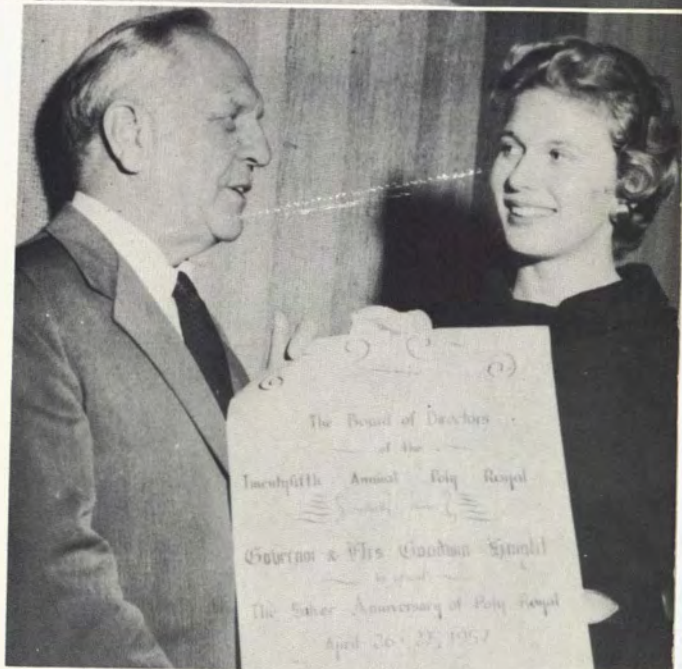 The Board of Directors
of the
Twentyfifth Annual Poly Royal
Governor & Mrs Goodwin Knight
to attend
The Silver Anniversary of Poly Royal
April 26 & 27, 1957